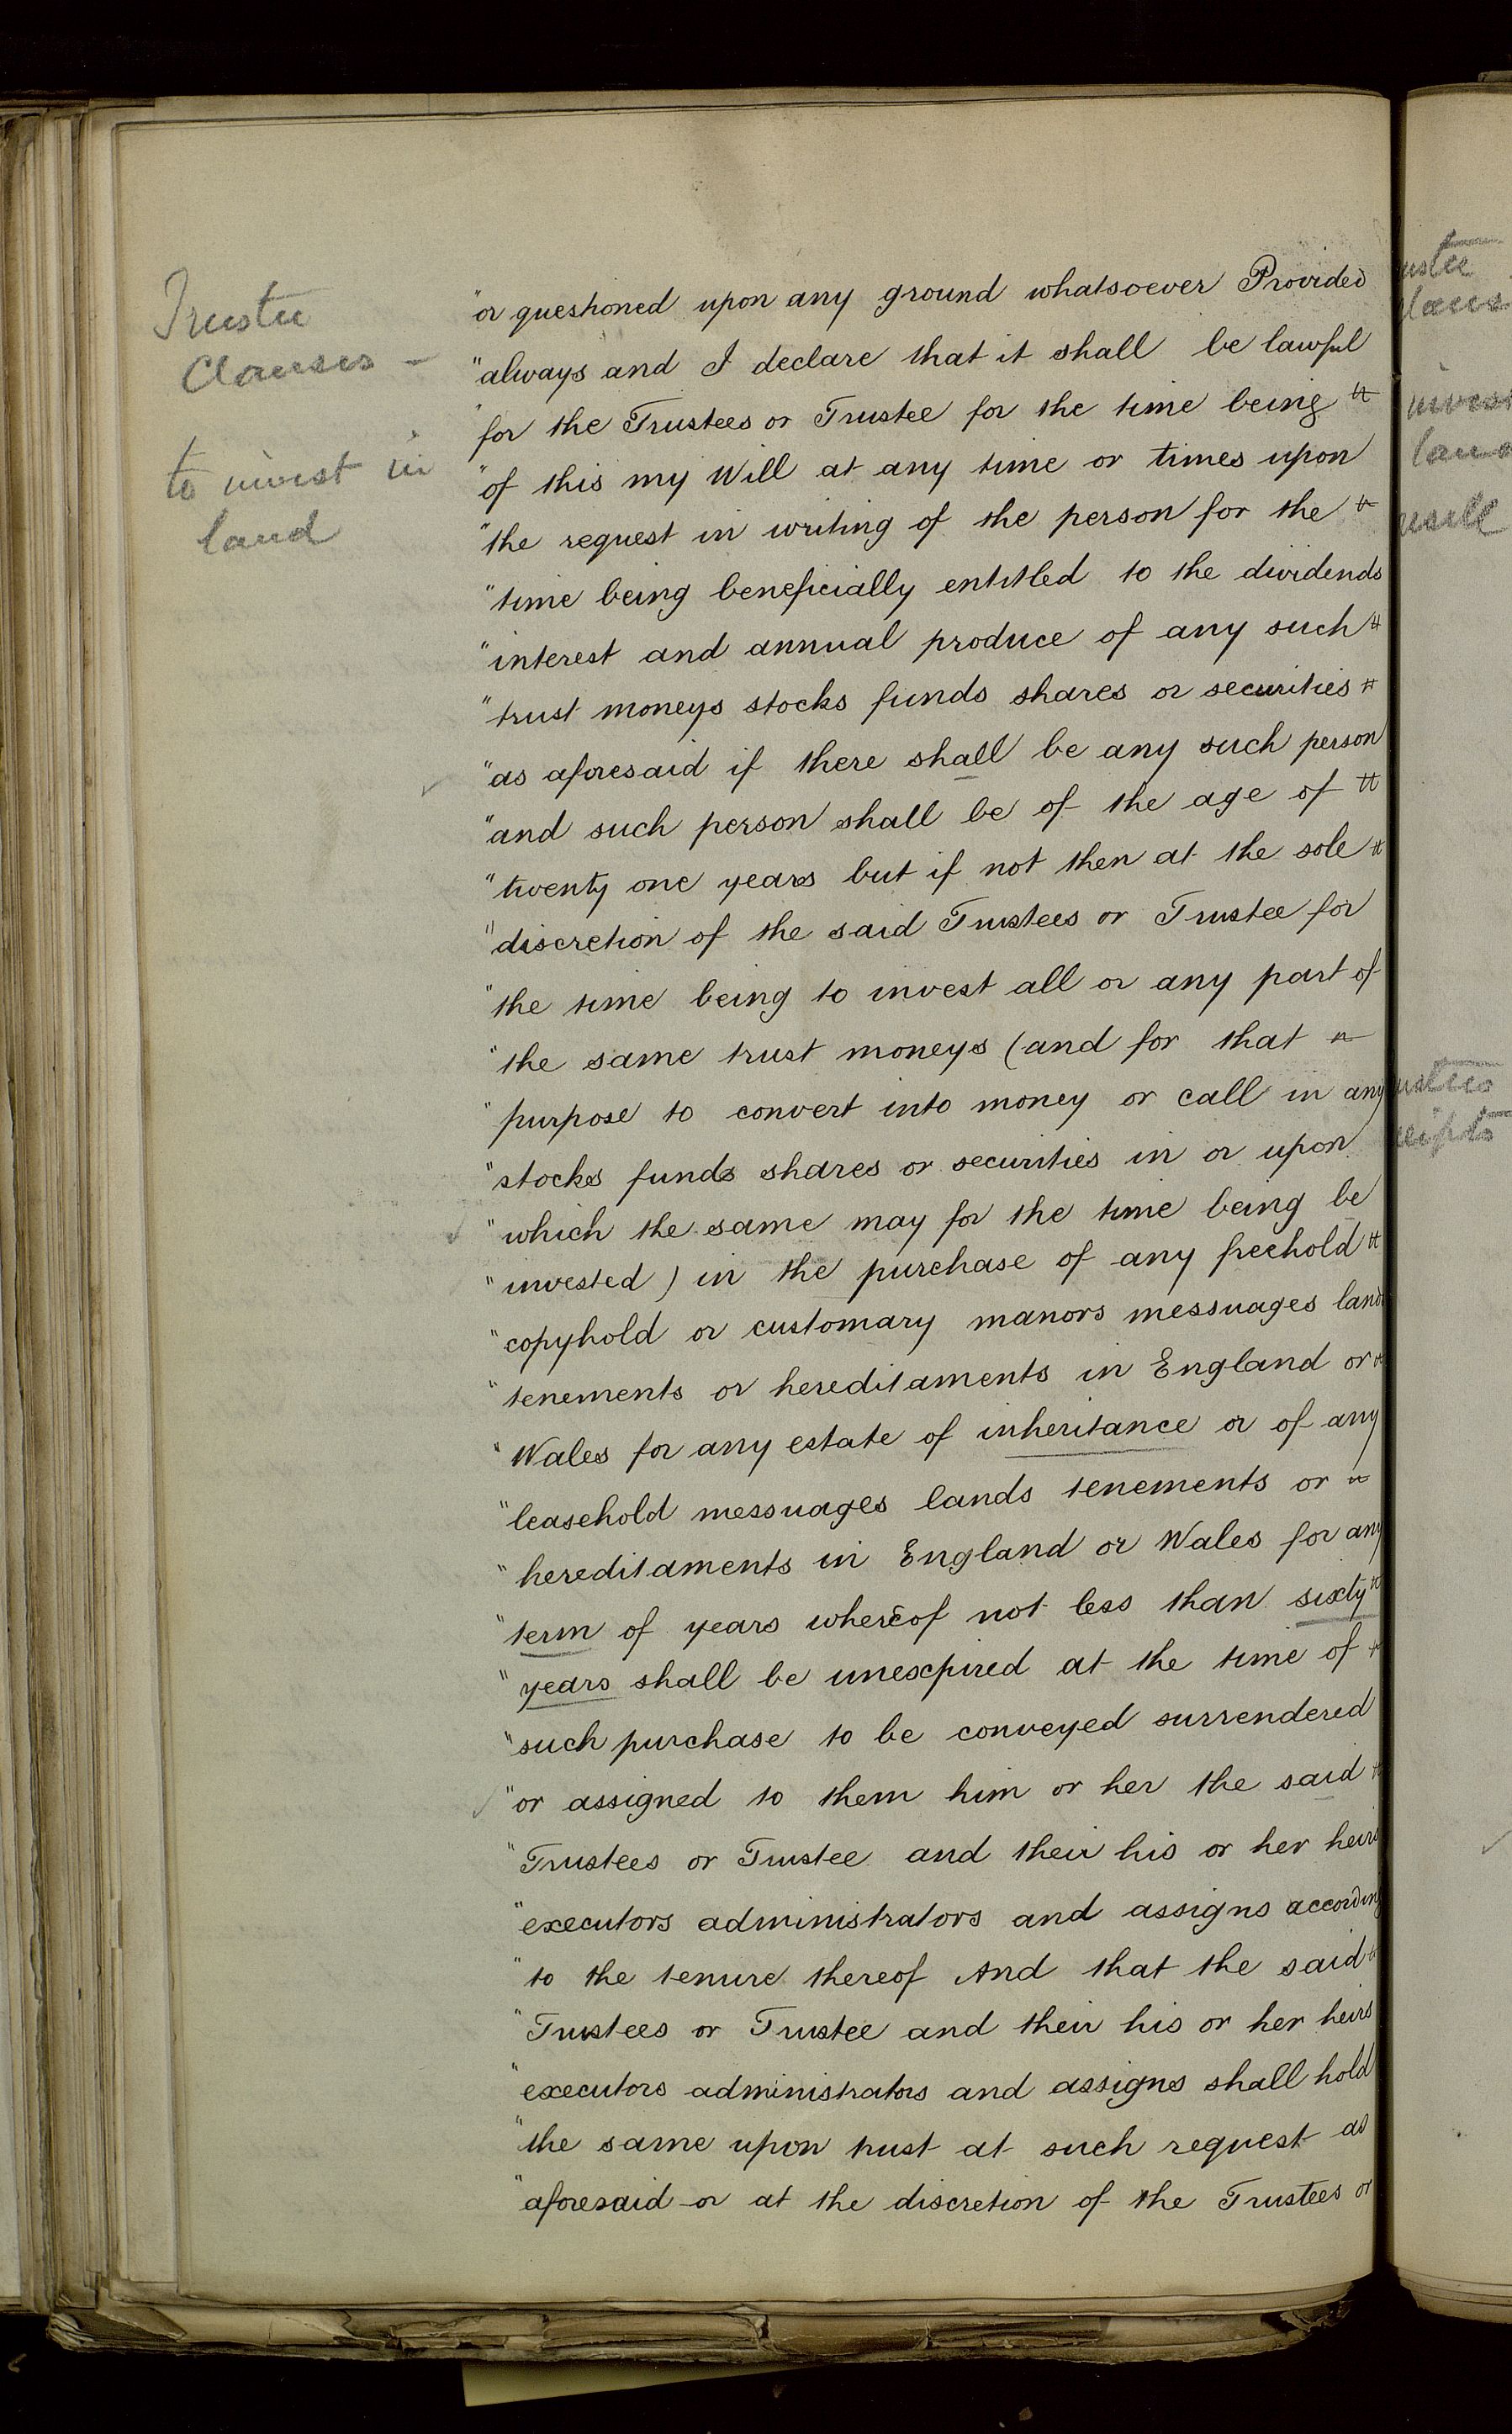 Trustee
Clauses -
to invest in
land
"or questioned upon any ground whatsoever Provided
"always and I declare that it shall be lawful
"for the Trustees or Trustee for the time being
"of this my Will at any time or times upon
"the request in writing of the person for the
"time being beneficially entitled to the dividends
"interest and annual produce of any such
"trust moneys stocks funds shares or securities
"as aforesaid if there shall be any such person
"and such person shall be of the age of
"twenty one years but if not then at the sole
"discretion of the said Trustees or Trustee for
"the time being to invest all or any part of
"the same trust moneys (and for that
"purpose to convert into money or call in any
"stocks funds shares or securities in or upon
"which the same may for the time being be
"invested) in the purchase of any freehold
"copyhold or customary manors messuages lands
"tenements or hereditaments in England or
"Wales for any estate of inheritance or of any
"leasehold messuages lands tenements or
"hereditaments in England or Wales for any
"term of years whereof not less than sixty
"years shall be unexpired at the time of
"such purchase to be conveyed surrendered
"or assigned to them him or her the said
"Trustees or Trustee and their his or her heirs
"executors administrators and assigns according
"to the tenure thereof And that the said
"Trustees or Trustee and their his or her heirs
"executors administrators and assigns shall hold
"the same upon trust at such request as
"aforesaid or at the discretion of the Trustees or
ustee
laus
invest
land
resell
ustees
ceipts